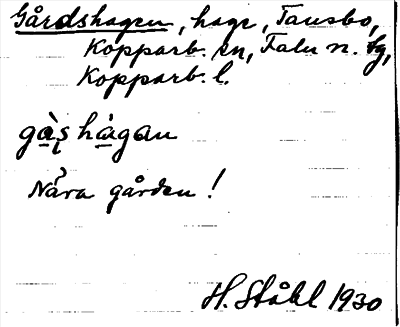 Gårdshagen, hage, Tansbo,
Kopparb. sn, Falu n. tg,
Kopparb. l.
gàʂhàgan
Nära gården!
H. Ståhl 1930